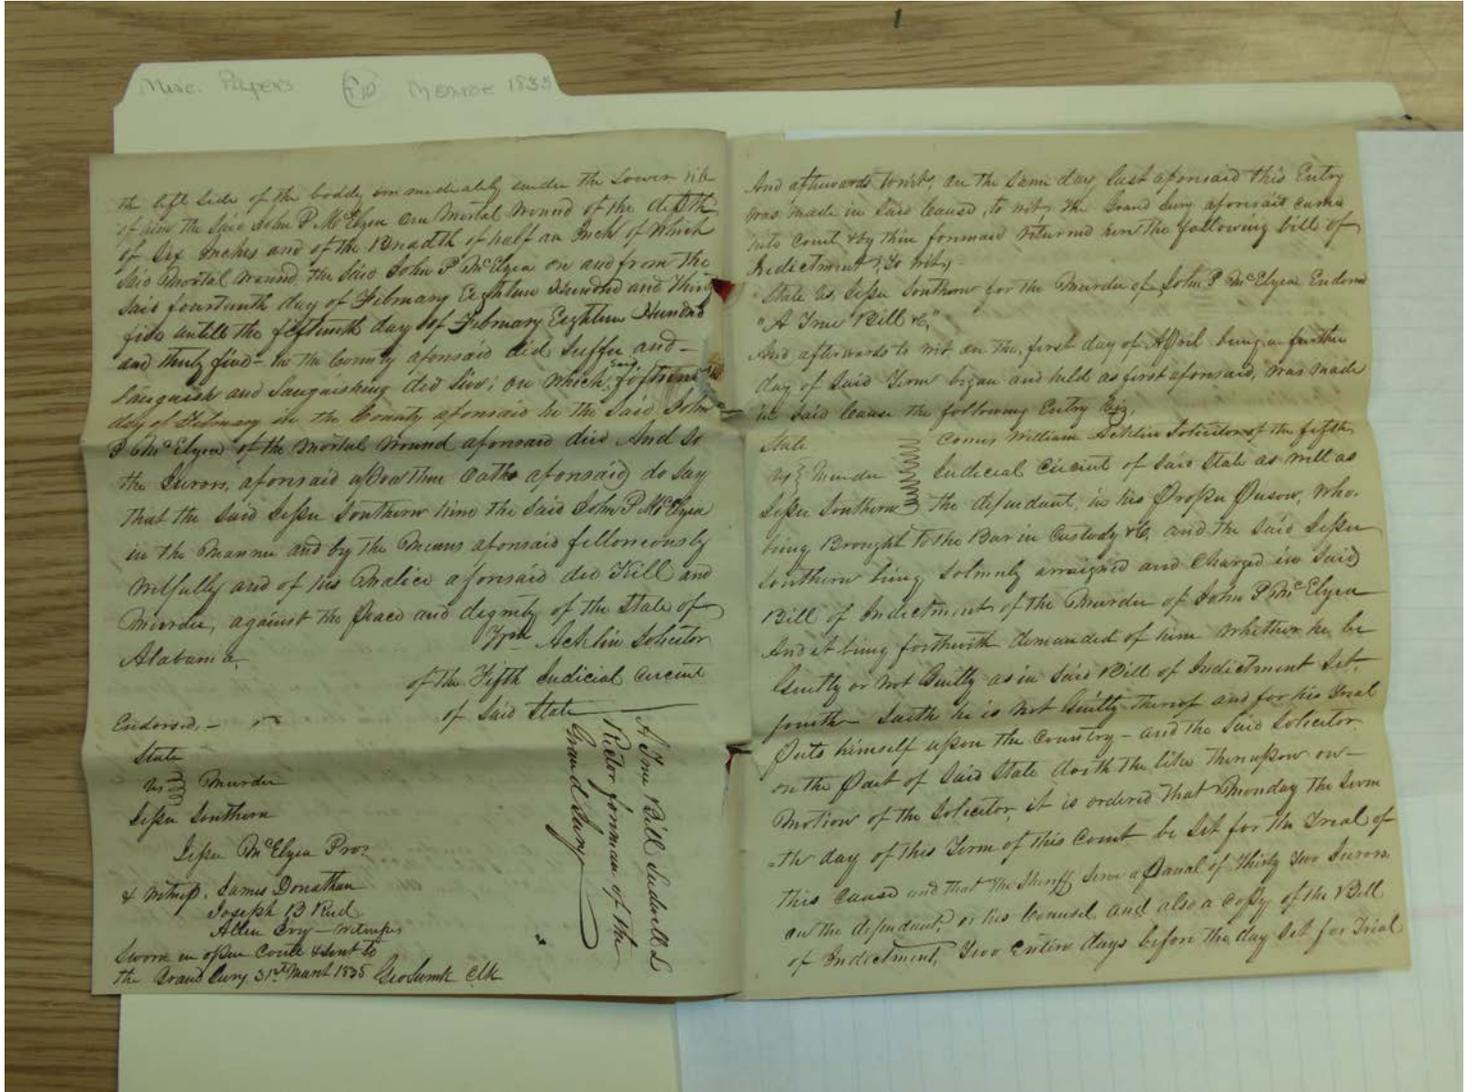 1
Misc. Papers F10 Monroe 1835
the left side of the boddy immediately under the Lower rib
of him the said John P McElyea one Mortal Wound of the depth
of Six Inches and of the Breadth of half an Inch of Which
said Mortal wound the Said John P McElyea on and from the
said fourteenth day of February Eighteen Hundred and thirty
five untill the fifteenth day of February Eighteen Hundred
and thirty five – in the County aforesaid did Suffer and –
Languish and Languishing did live; on which said fifteenth
day of February in the County aforesaid he the Said John
P McElyea of the Mortal Wound aforesaid died And so
the Jurors, aforesaid upon their Oaths aforesaid, do Say
that the Said Jesse Southern him the Said John P McElyea
in the Manner and by the Means aforesaid felloniously
wilfully and of his Malice aforesaid did Kill and
Murder, against the Peace and dignity of the State of
Alabama.
Wm Acklin Solicitor
of the Fifth Judicial Circuit
of Said State
Endorsed. –
State
vs Murder
Jesse Southern
Jesse McElyea Pros
& witness. James Donathan
Joseph B Reid
Allen Ivy – Witnesses
Sworn in open Court & sent to
the Grand Jury 31st March 1835 Clk
A True Bill L
Rector foreman of the
Grand Jury
And afterwards towit, on the same day, last aforesaid this Entry
was made in Said Cause, to wit, the Grand Jury aforesaid came
into Court & by their foreman returned here the following bill of
Indictment, to wit,
"State vs Jesse Southern for the Murder of John P McElyea Endorsed
"A True Bill &c"
And afterwards to wit on the, first day of April being a further
day of Said Term began and held as first aforesaid, was made
in said Cause the following Entry Viz,
State
vs Murder
Jesse Southern
Comes William Acklin Solicitor of the fifth
Judicial Circuit of Said State as well as
the defendant, in his Proper Person, who.
being Brought to the Bar in Custody &C. and the Said Jesse
Southern being Solemnly arraigned and Charged in Said
Bill of Indictment of the Murder of John P McElyea
And it being forthwith demanded of him whether he be
Guilty or Not Guilty as in Said Bill of Indictment Set.
fourth – Saith he is Not Guilty thereof and for his Trial
Puts himself upon the Country – and the Said Solicitor
on the Part of Said State doth the like Thereupon on –
Motion of the Solicitor, it is ordered that Monday the Seven
=th day of this Term of this Court be Set for the Trial of
this Cause and that the Sheriff Serve a Panal of Thirty Two Jurors.
on the defendant, or his Counsel and also a copy of the Bill
of Indictment, Two Entire days before the day Set for Trial